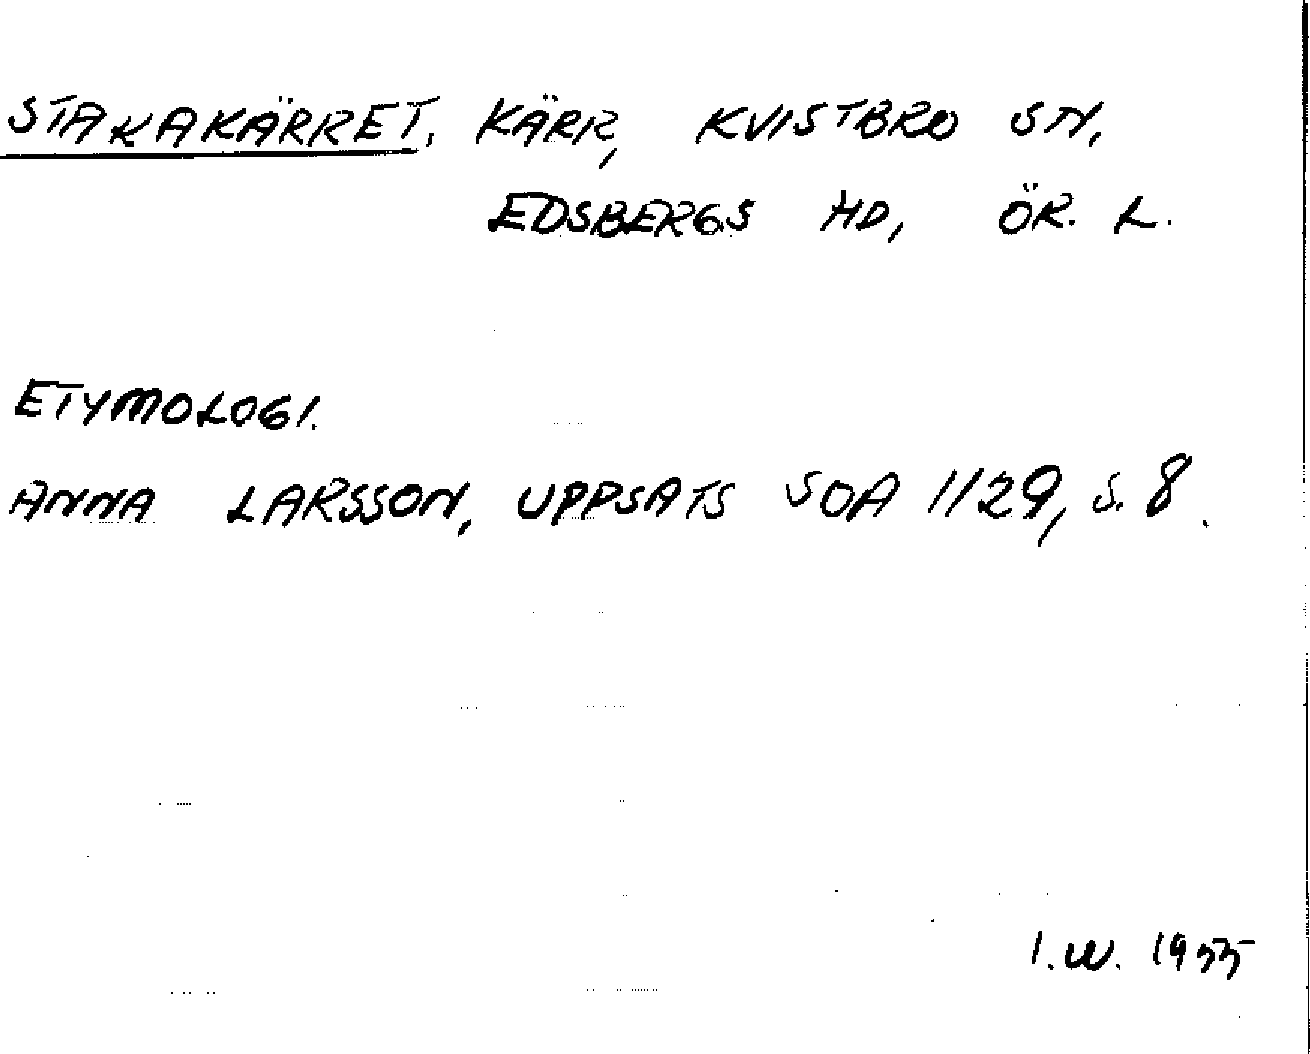 STAKAKÄRRET, KÄRR, KVISTBRO SN,
EDSBERGS HD, ÖR. L.
ETYMOLOGI.
ANNA LARSSON, UPPSATS SOA 1129, S. 8.
I.W. 1955